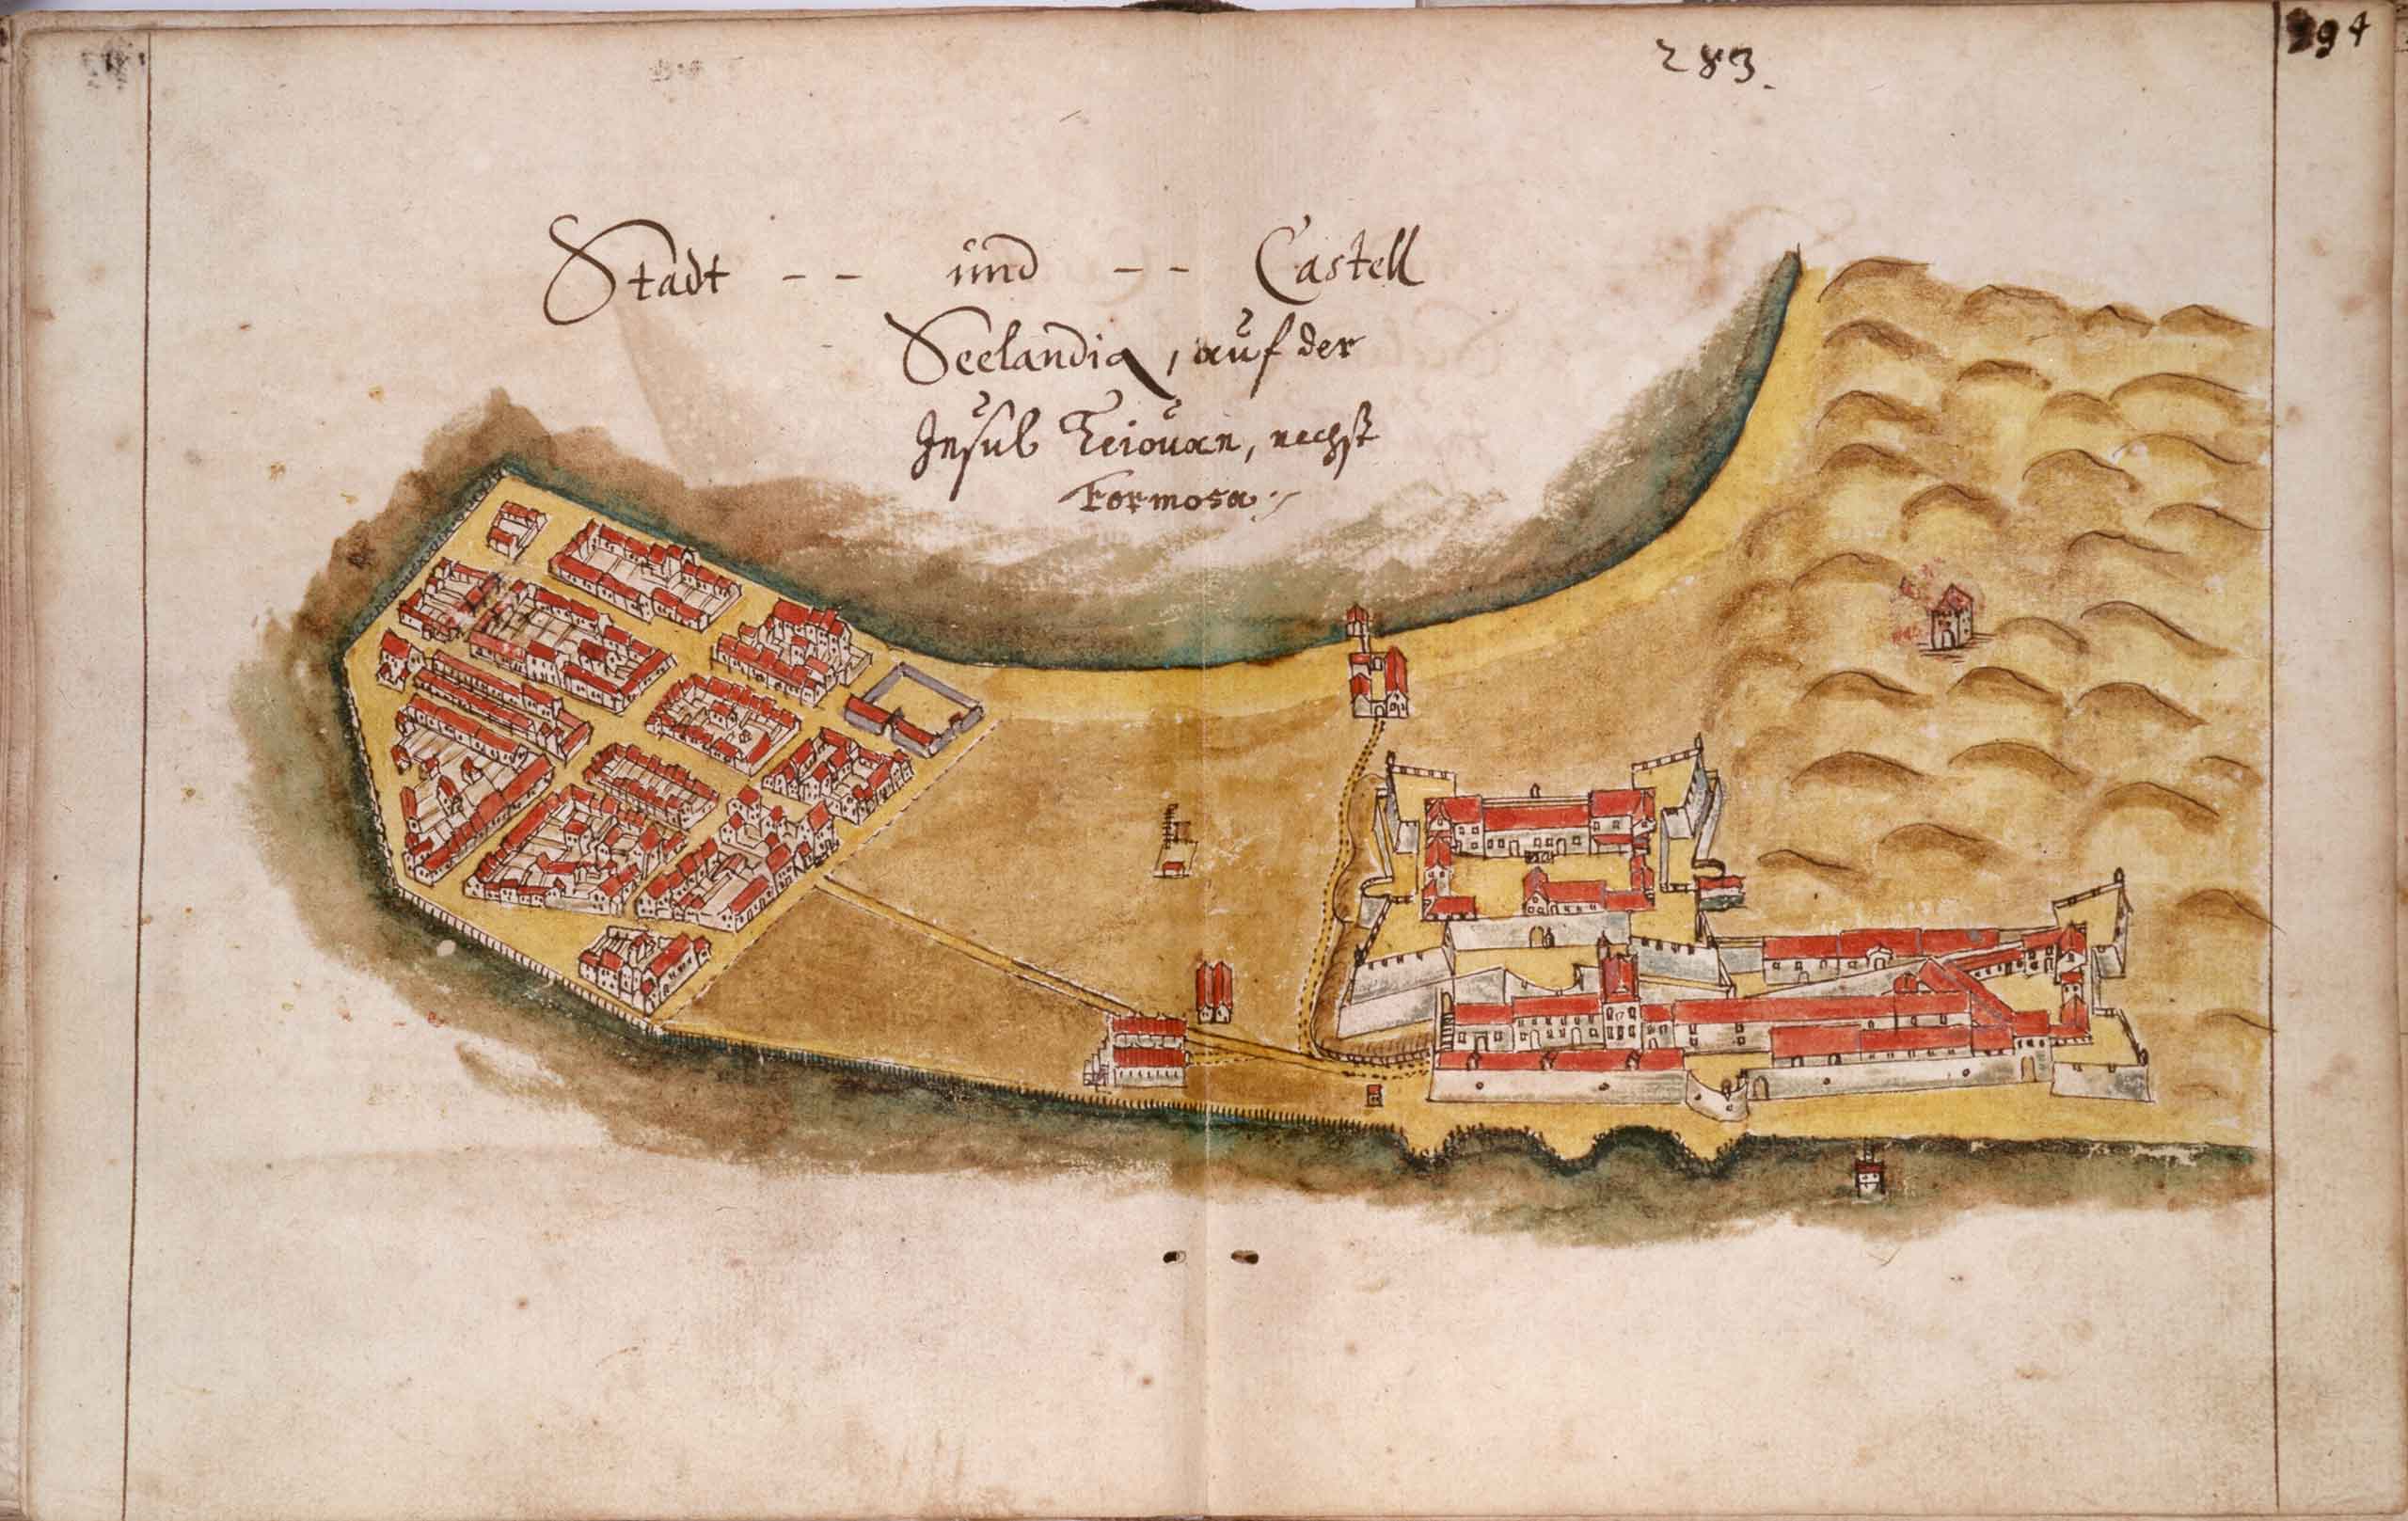 283.
94
Stadt -- und -- Castell
Seelandia, auf der
Insul Teiouan, nechst
Formosa.